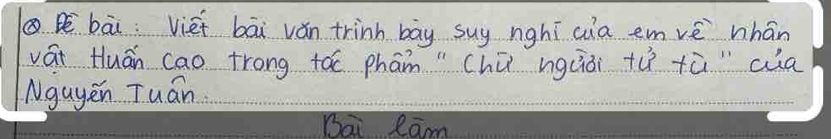 Đề bài: Viết bài văn trình bày suy nghĩ của em về nhân
vật Huấn Cao trong tác phẩm "Chữ người tử tù" của
Nguyễn Tuân.
Bài làm